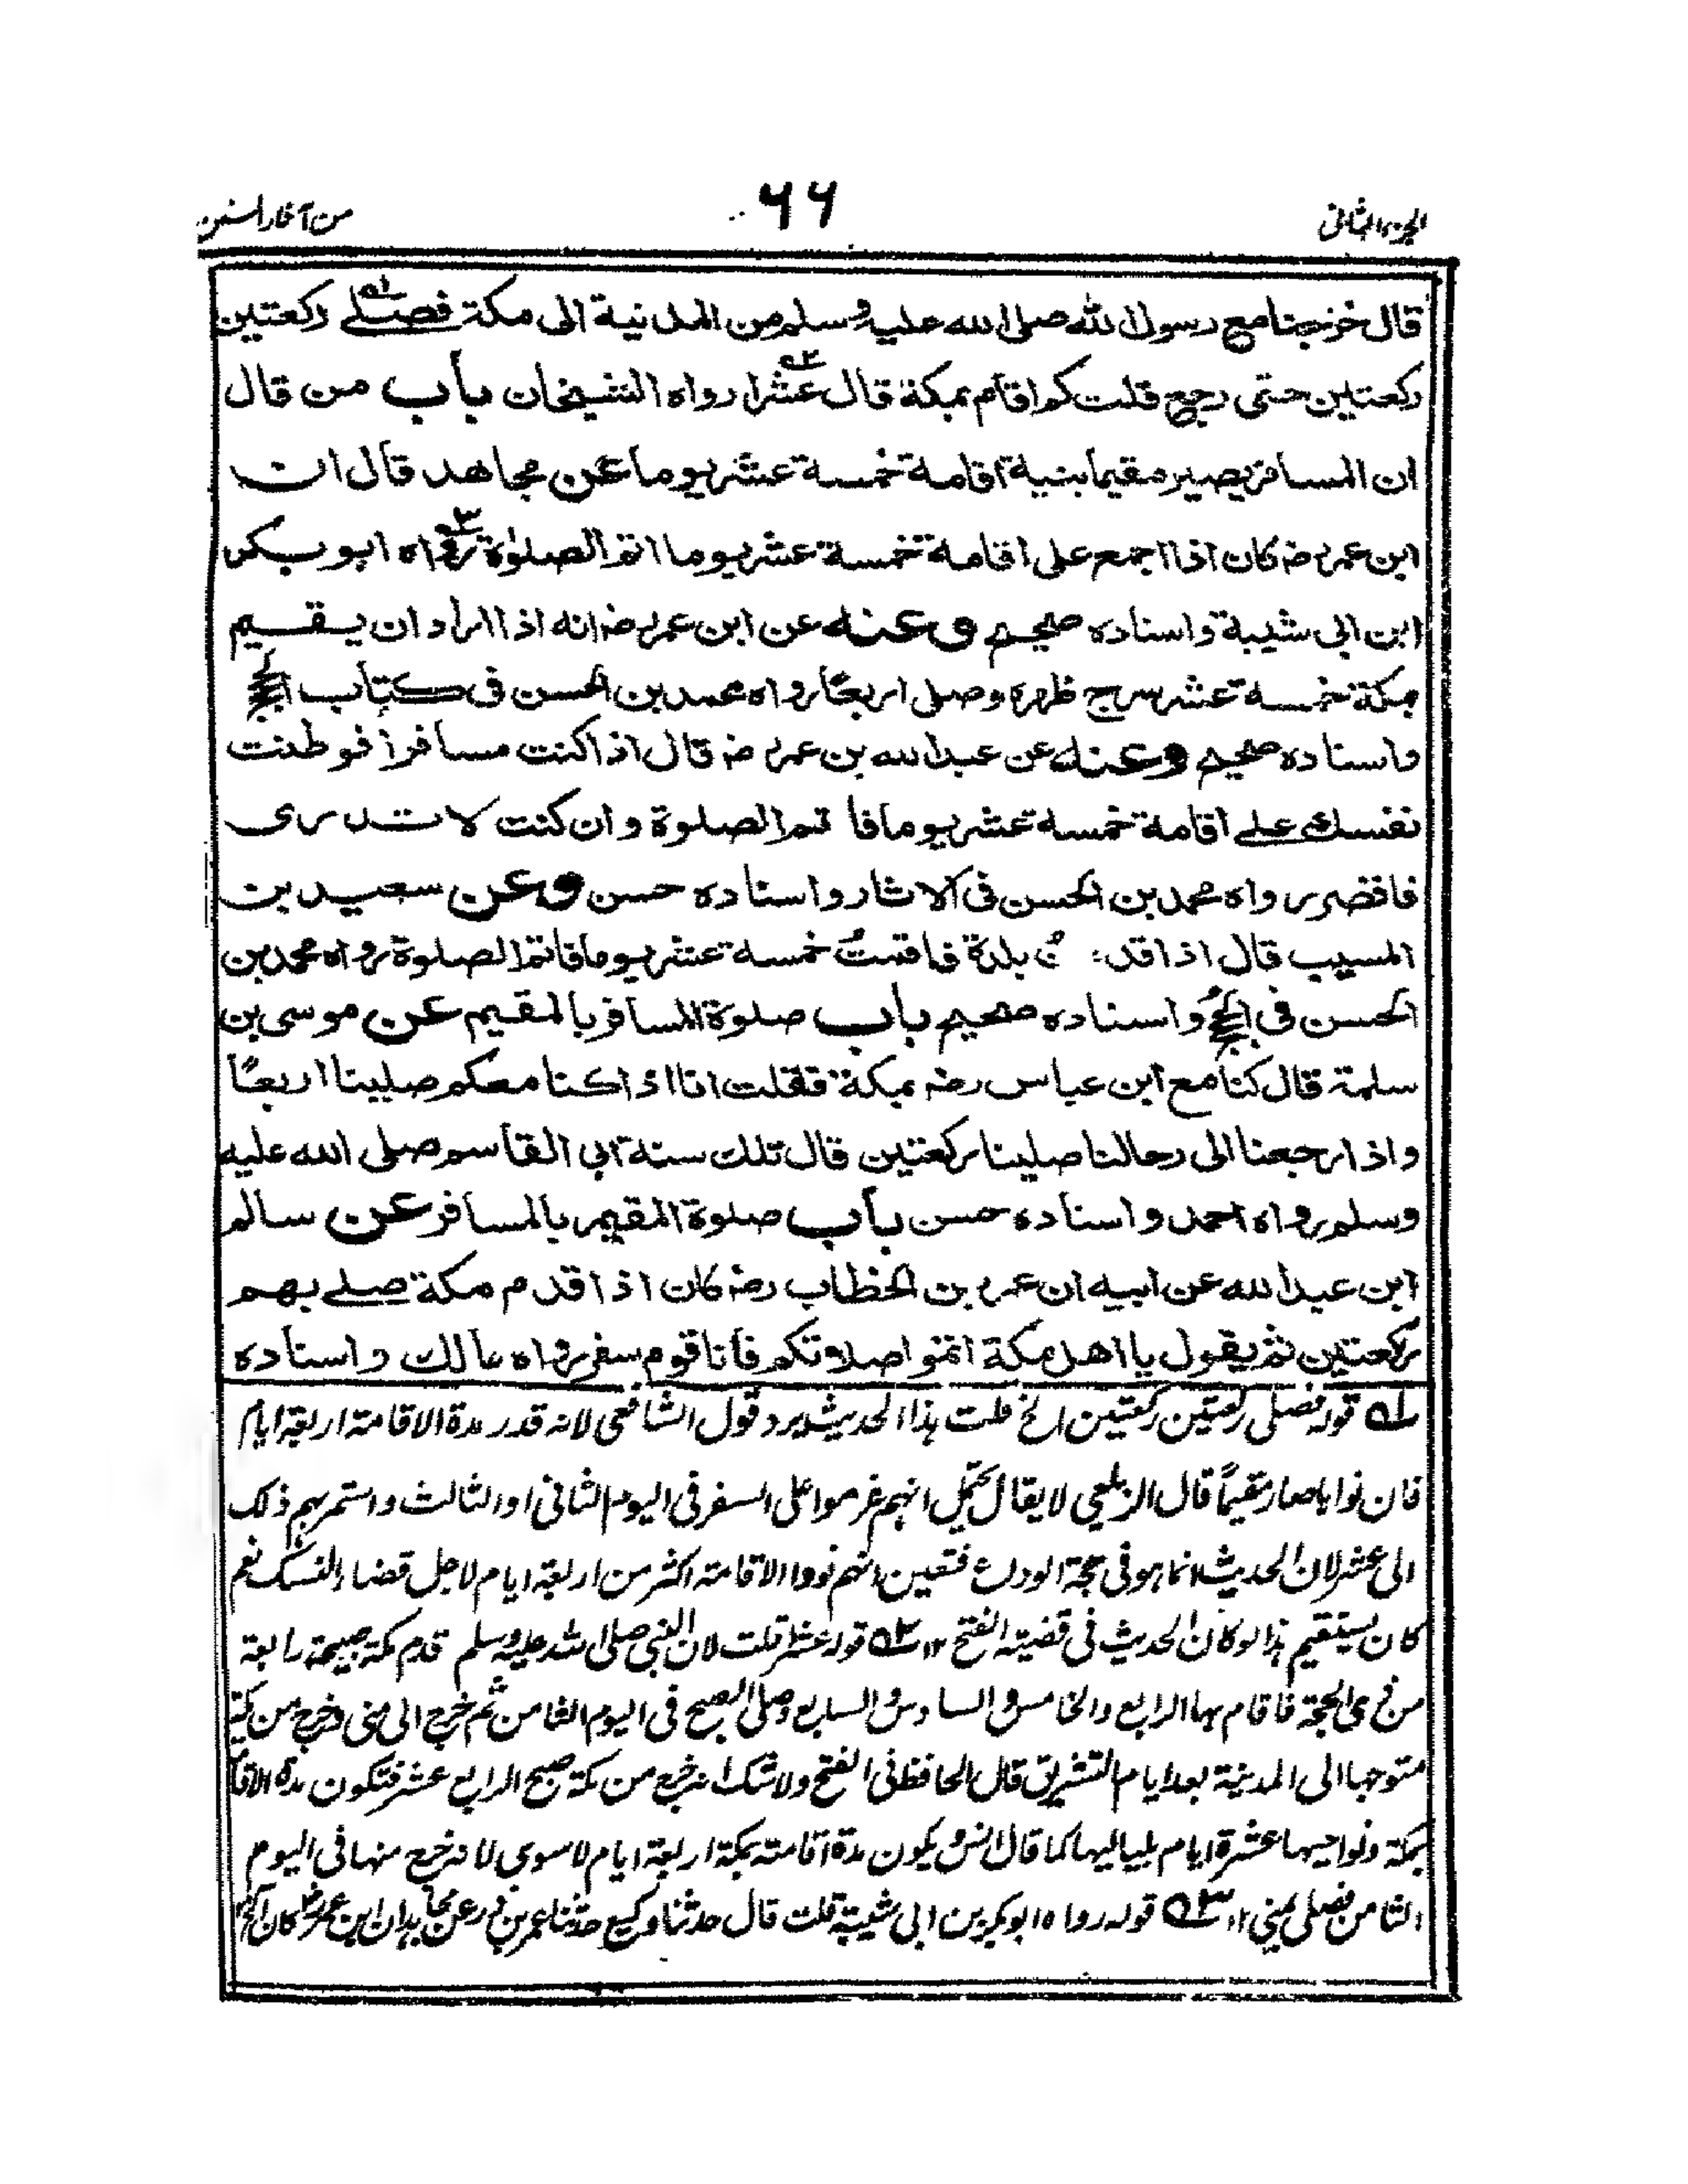 الجزء الثانی
۶۶
من آثار السنن
قال خرجنا مع رسول الله صلی الله علیه وسلم من المدنیة الی مکة فصلے رکعتین
رکعتین حتی رجع قلت کم اقام بمکة قال عشرا رواه الشیخان باب من قال
ان المسافر یصیر مقیما بنیة اقامة خمسة عشر یوما عن مجاهد قال ان
ابن عمر رض کان اذا اجمع علی اقامة خمسة عشر یوما اتم الصلوٰة رواه ابو بکر
ابن ابی شیبة واسناده صحیح وعنه عن ابن عمر رض انه اذا اراد ان یقیم
بمکة خمسة عشر سرح ظهره وصلی اربعًا رواه محمد بن الحسن فی کتاب الحجج
واسناده صحیح وعنه عن عبد الله بن عمر رض قال اذا کنت مسافرًا فوطنت
نفسك علے اقامة خمسة عشر یوما فاتمم الصلوة وان کنت لا تدری
فاقصر رواه محمد بن الحسن فی الاثار واسناده حسن وعن سعید بن
المسیب قال اذا قدمت بلدة فاقمت خمسة عشر یوما فاتم الصلوة رواه محمد بن
الحسن فی الحجج واسناده صحیح باب صلوة المسافر بالمقیم عن موسی بن
سلمة قال کنا مع ابن عباس رض بمکة فقلت انا اذا کنا معکم صلینا اربعًا
واذا رجعنا الی رحالنا صلینا رکعتین قال تلك سنة ابی القاسم صلی الله علیه
وسلم رواه احمد واسناده حسن باب صلوة المقیم بالمسافر عن سالم
ابن عبد الله عن ابیه ان عمر بن الخطاب رض کان اذا قدم مکة صلے بهم
رکعتین ثم یقول یا اهل مکة اتموا صلاتکم فانا قوم سفر رواه مالك واسناده
۱ قوله فصلی رکعتین رکعتین الخ قلت هذا الحدیث یرد قول الشافعی لانه قدر مدة الاقامة اربعة ایام
فان نواها صار مقیمًا قال الزیلعی لا یقال یحتمل انهم عزموا علی السفر فی الیوم الثانی او الثالث واستمر بهم ذلک
الی عشر لان الحدیث انما هو فی حجة الوداع فتعین انهم نووا الاقامة اکثر من اربعة ایام لاجل قضاء النسک نعم
کان یستقیم هذا لو کان الحدیث فی قضیة الفتح ۱۲ ۲ قوله عشرا قلت لان النبی صلی الله علیه وسلم قدم مکة صبیحة رابعة
من ذی الحجة فاقام بها الرابع والخامس والسادس والسابع وصلی الصبح فی الیوم الثامن ثم خرج الی منی وخرج من مکة
متوجها الی المدینة بعد ایام التشریق قال الحافظ فی الفتح ولا شک انه خرج من مکة صبح الرابع عشر فتکون مدة الاقامة
بمکة ونواحیها عشرة ایام بلیالیها کما قال انس ویکون مدة اقامته بمکة اربعة ایام لا سوی لانه خرج منها فی الیوم
الثامن فصلی بمنی ۱۲ ۳ قوله رواه ابو بکر بن ابی شیبة قلت قال حدثنا وکیع حدثنا عمر بن ذر عن مجاهد ان ابن عمر رض کان